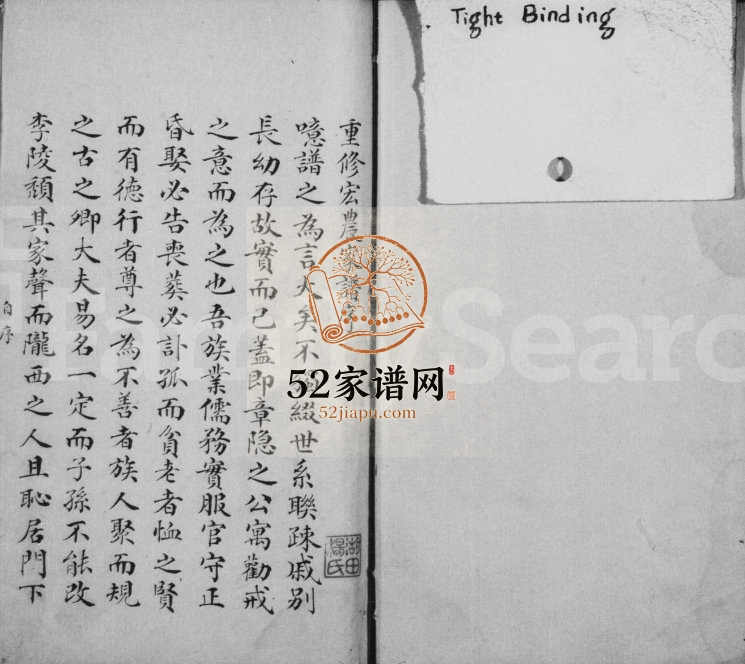 Tight Binding
重修宏農家譜序
噫譜之為言大矣不綴世系聯疎戚别
長幼存故實而已蓋即章隐之公寓勸戒
之意而為之也吾族業儒務實服官守正
昏娶必告喪葬必訃孤而貧老者恤之賢
而有德行者尊之為不善者族人聚而規
之古之卿大夫易名一定而子孫不能改
李陵頽其家聲而隴西之人且恥居門下
自序
湖田楊氏
FamilySearch
52家谱网
52jiapu.com